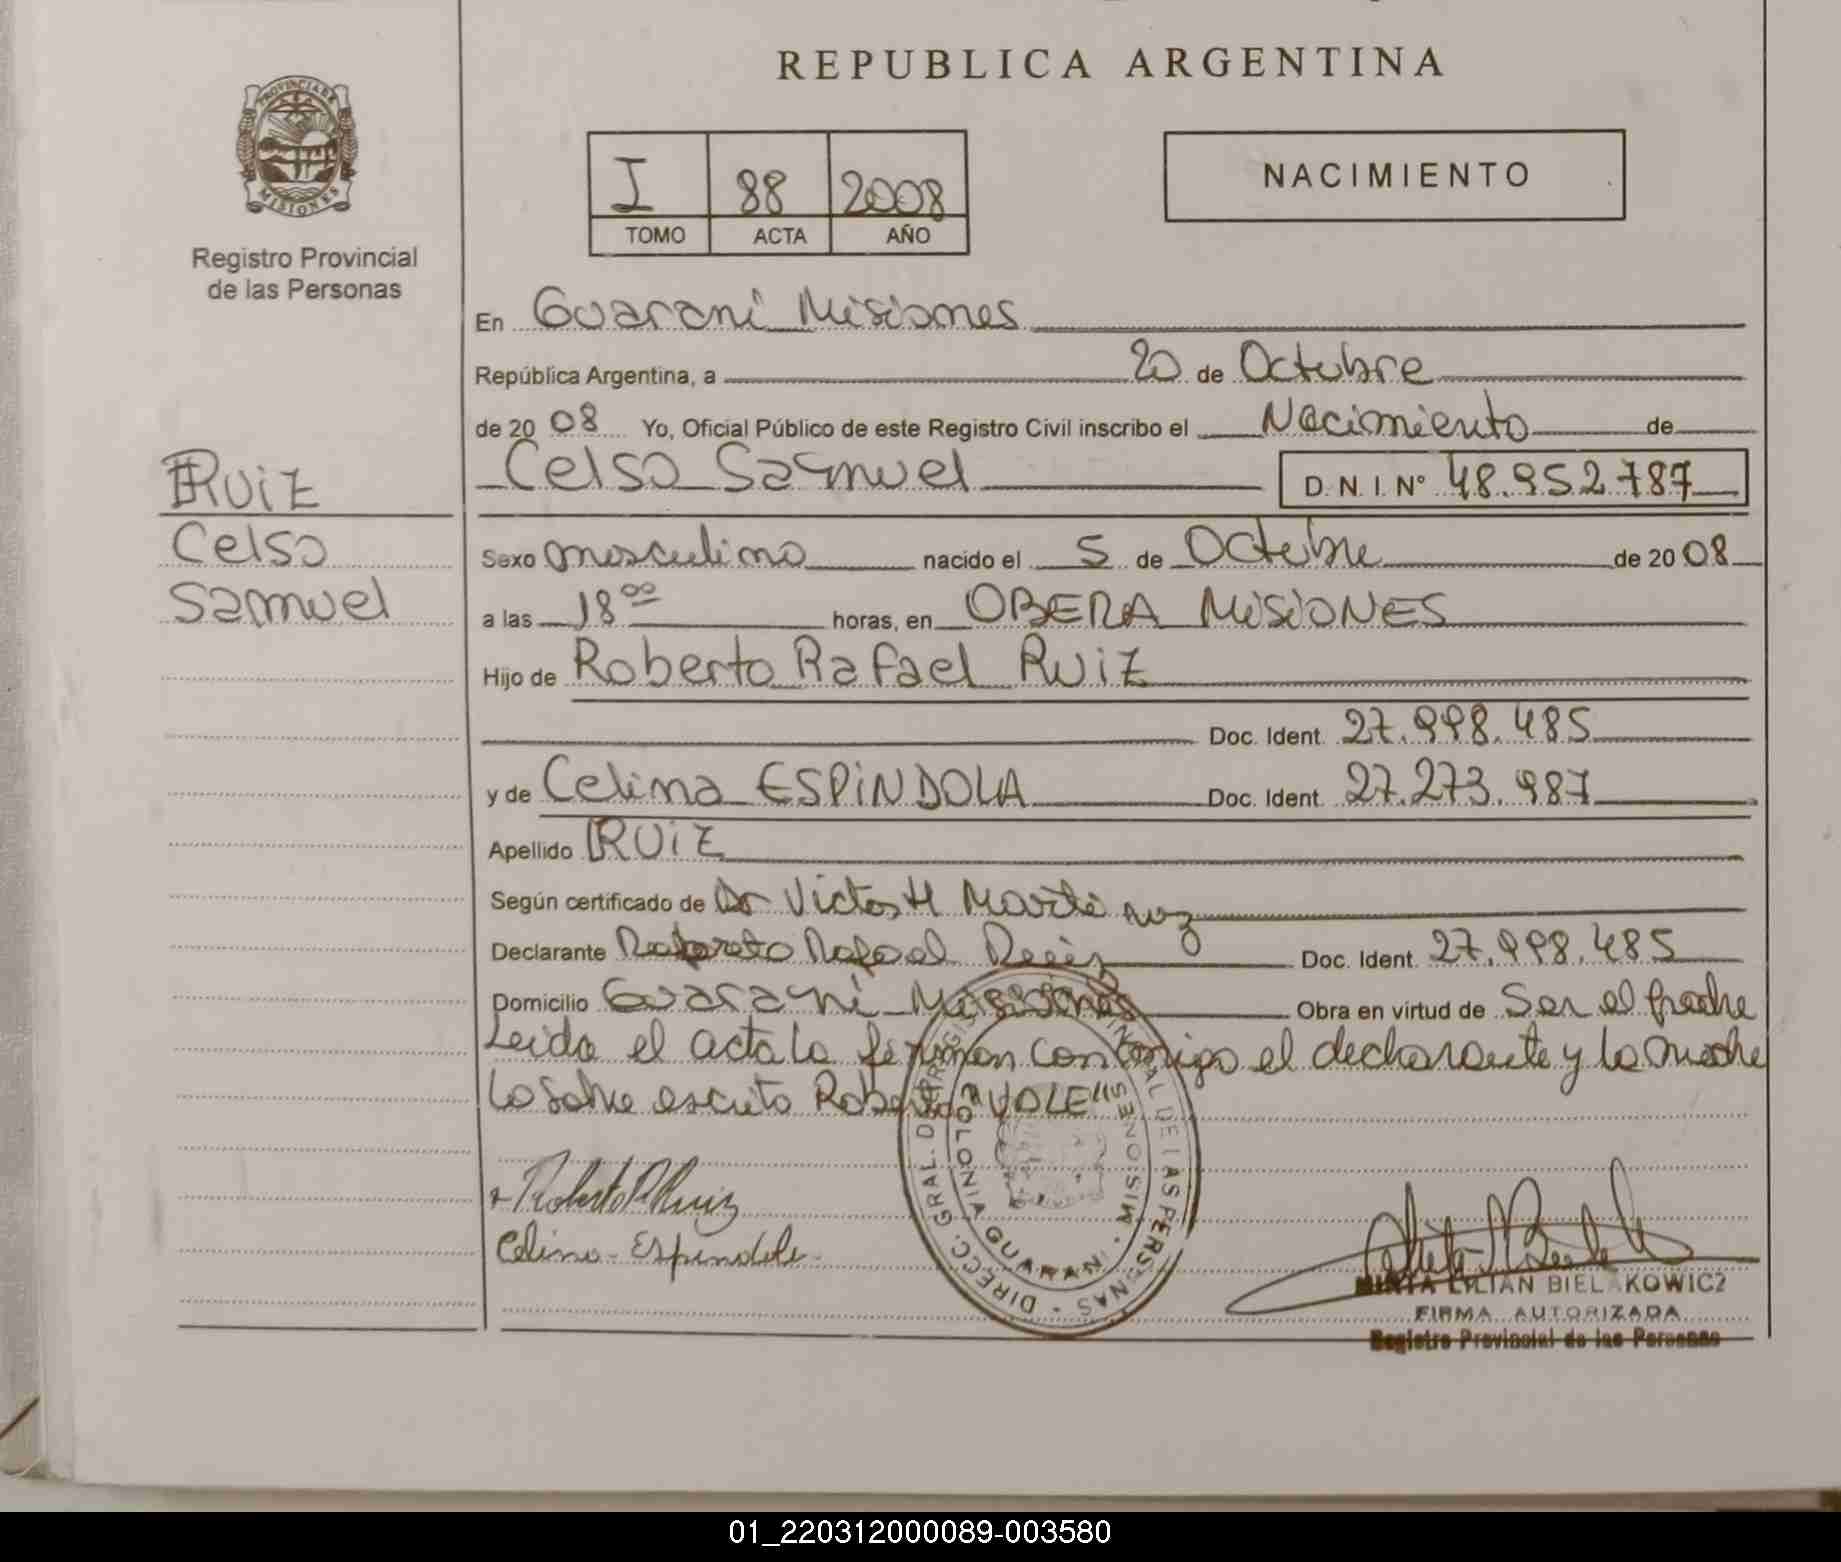 REPUBLICA ARGENTINA
PROVINCIA DE
MISIONES
Registro Provincial
de las Personas
I 88 2008
TOMO ACTA AÑO
NACIMIENTO
En Guarani Misiones
República Argentina, a 20 de Octubre
de 20 08 Yo, Oficial Público de este Registro Civil inscribo el Nacimiento de
Celso Samuel D. N. I. N° 48.952787
RUiZ
Celso
Samuel
Sexo masculino nacido el 5 de Octubre de 20 08
a las 18 00 horas, en OBERA MiSiONES
Hijo de Roberto Rafael RUiZ
Doc. Ident. 27.998.485
y de Celina ESPiNDOLA Doc. Ident. 27.273.987
Apellido RUiZ
Según certificado de Dr Victor H Martinez
Declarante Roberto Rafael Ruiz Doc. Ident. 27.998.485
Domicilio Guarani Misiones Obra en virtud de Ser el padre
Leida el acta la firman conmigo el declarante y la madre
Lo sobre escrito Roberto "VALE"
Roberto R Ruiz
Celina Espindola
DIRECC. GRAL. DE REGISTRO PROVINCIAL DE LAS PERSONAS
GUARANI MISIONES
MIRTA LILIAN BIELAKOWICZ
FIRMA AUTORIZADA
Registro Provincial de las Personas
01_220312000089-003580